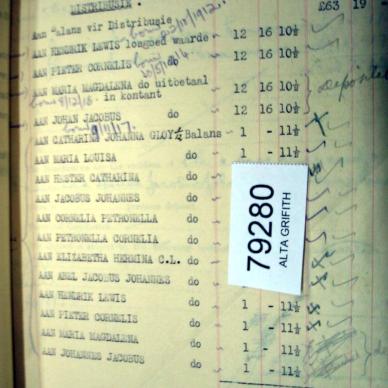 DISTRIBUSIE.
Aan Balans vir Distribusie £63 19 -
born 22/10/1912.
AAN HENDRIK LEWIS toegoed waarde 12 16 10½
AAN PIETER CORNELIS do 12 16 10½
AAN MARIA MAGDALENA do uitbetaal
born 9/12/15 - in kontant 12 16 10½
AAN JOHAN JACOBUS do 12 16 10½
born 9/11/17.
AAN CATHARINA JOHANNA GLOY ¼ Balans - 1 - 11½
AAN MARIA LOUISA do 1 - 11½
AAN HESTER CATHARINA do
AAN JACOBUS JOHANNES do
AAN CORNELIA PETRONELLA do
AAN PETRONELLA CORNELIA do
AAN ELIZABETHA HERMINA C.L. do
AAN ABEL JACOBUS JOHANNES do
AAN HENDRIK LEWIS do 1 - 11½
AAN PIETER CORNELIS do 1 - 11½
AAN MARIA MAGDALENA do 1 - 11½
AAN JOHANNES JACOBUS do 1 - 11½
79280
ALTA GRIFITH